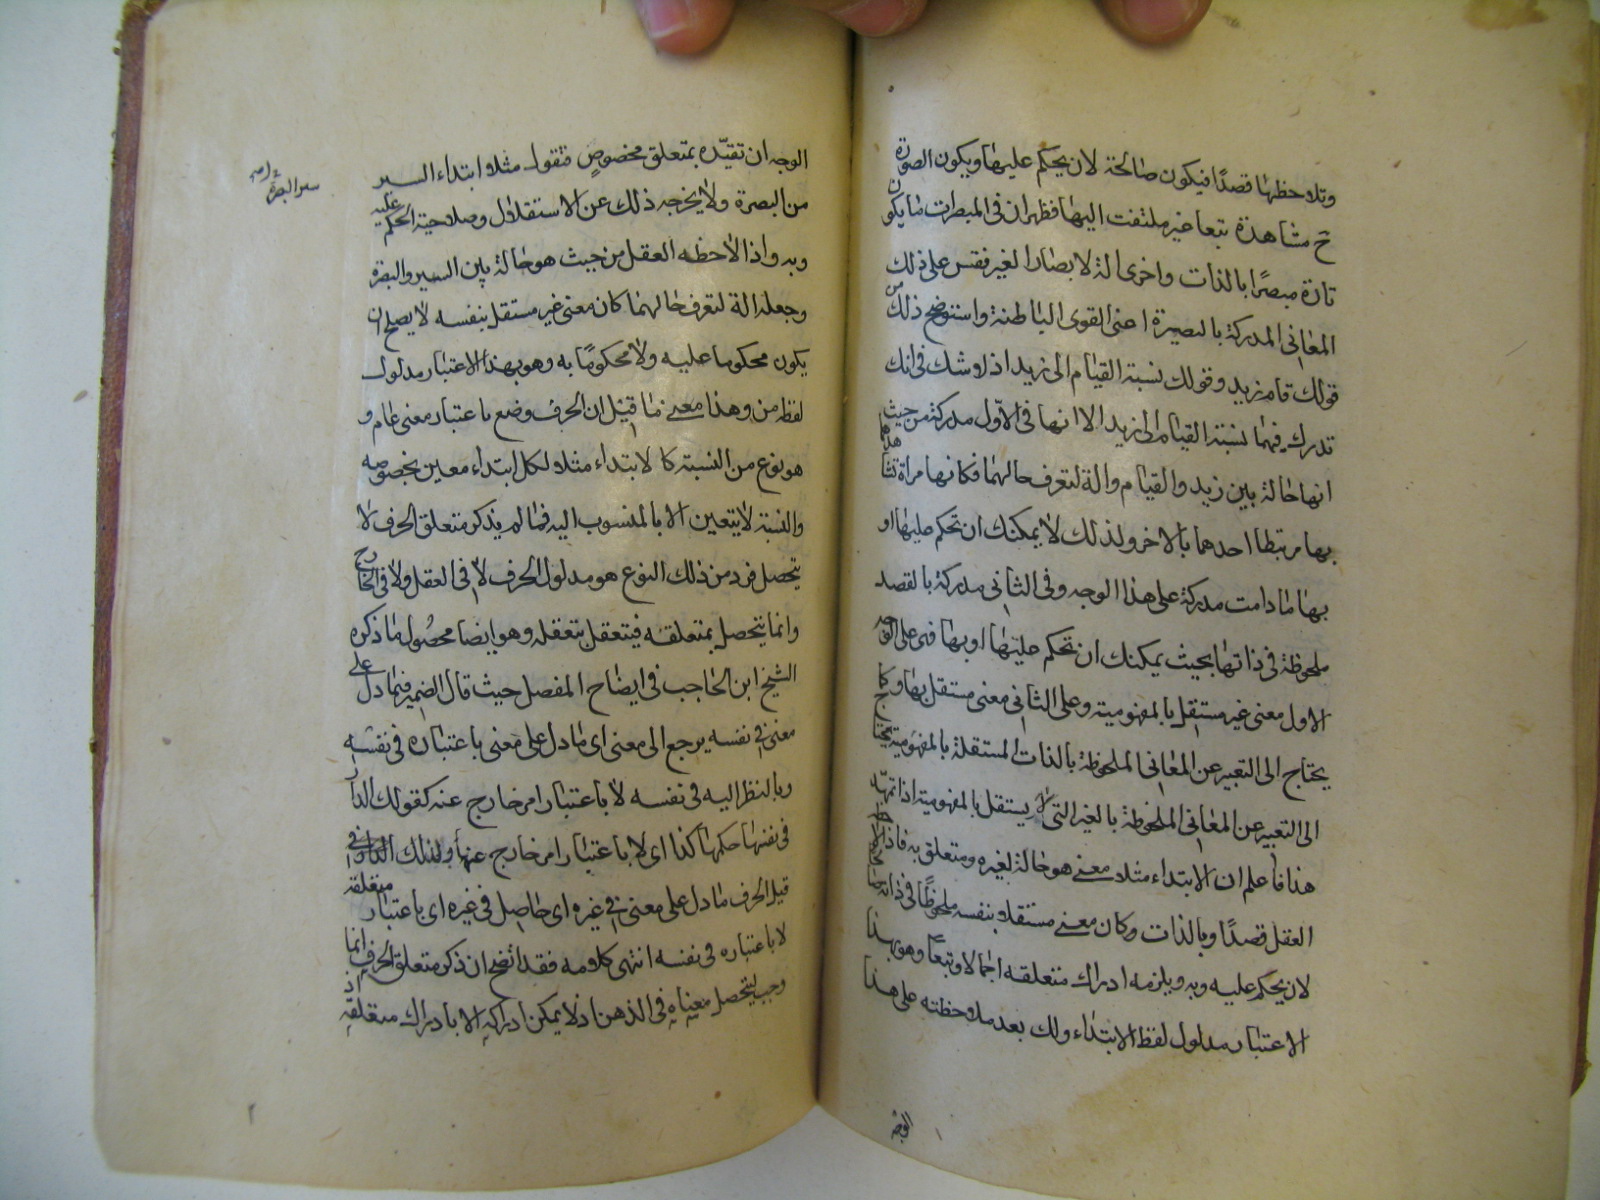 وتلاحظها قصدًا فيكون صالحة لان يحكم عليها ويكون الصورة
ح مشاهدة تبعا غير ملتفت اليها فظهر ان فى المبصرات ما يكون
تارة مبصرًا بالذات واخرى الة لابصار الغير فقس على ذلك
المعانى المدركة بالبصيرة اعنى القوى الباطنة واستوضح ذلك من
قولك قام زيد وقولك نسبة القيام الى زيد اذ لا شك فى انك
تدرك فيهما نسبة القيام الى زيد الا انها فى الاوّل مدركة من حيث
انها حالة بين زيد والقيام والة لتعرف حالهما فكانها مراة تشاهدهما
بها مرتبطا احدهما بالاخر ولذلك لا يمكنك ان تحكم عليها او
بها ما دامت مدركة على هذا الوجه وفى الثانى مدركة بالقصد
ملحوظة فى ذاتها بحيث يمكنك ان تحكم عليها او بها فهى على الوجه
الاول معنى غير مستقل بالمفهومية وعلى الثانى معنى مستقل بها وكما
يحتاج الى التعبير عن المعانى الملحوظة بالذات المستقلة بالمفهومية يحتاج
الى التعبير عن المعانى الملحوظة بالغير التى لا يستقل بالمفهومية اذا تمهّد
هذا فاعلم ان الابتداء مثلا معنى هو حالة لغيره ومتعلق به فاذا لاحظه
العقل قصدًا وبالذات وكان معنى مستقلا بنفسه ملحوظًا فى ذاته صالحا
لان يحكم عليه وبه ويلزمه ادراك متعلقه اجمالا وتبعًا وهو بهذا
الاعتبار مدلول لفظ الابتداء ولك بعد ملاحظته على هذا
الوجه
الوجه ان تقيّده بمتعلق مخصوص فتقول مثلا ابتداء السير
من البصرة ولا يخرجه ذلك عن الاستقلال وصلاحية الحكم عليه
وبه واذا لاحظه العقل من حيث هو حالة بين السير والبصرة
وجعله الة لتعرف حالهما كان معنى غير مستقل بنفسه لا يصلح ان
يكون محكوما عليه ولا محكومًا به وهو بهذا الاعتبار مدلول
لفظ من وهذا معنى ما قيل ان الحرف وضع باعتبار معنى عام و
هو نوع من النسبة كالابتداء مثلا لكل ابتداء معين بخصوصه
والنسبة لا يتعين الا بالمنسوب اليه فما لم يذكر متعلق الحرف لا
يتحصل فرد من ذلك النوع هو مدلول الحرف لا فى العقل ولا فى الخارج
وانما يتحصل بمتعلقه فيتعقل بتعقله وهو ايضا محصول ما ذكره
الشيخ ابن الحاجب فى ايضاح المفصل حيث قال الضمير فيما دل على
معنى فى نفسه يرجع الى معنى اى ما دل على معنى باعتباره فى نفسه
وبالنظر اليه فى نفسه لا باعتبار امر خارج عنه كقولك الدار
فى نفسها حكمها كذا اى لا باعتبار امر خارج عنها ولذلك
قيل الحرف ما دل على معنى فى غيره اى حاصل فى غيره اى باعتبار متعلقه
لا باعتباره فى نفسه انتهى كلامه فقد اتضح ان ذكر متعلق الحرف انما
وجب ليتحصل معناه فى الذهن اذ لا يمكن ادراكه الا بادراك متعلقه